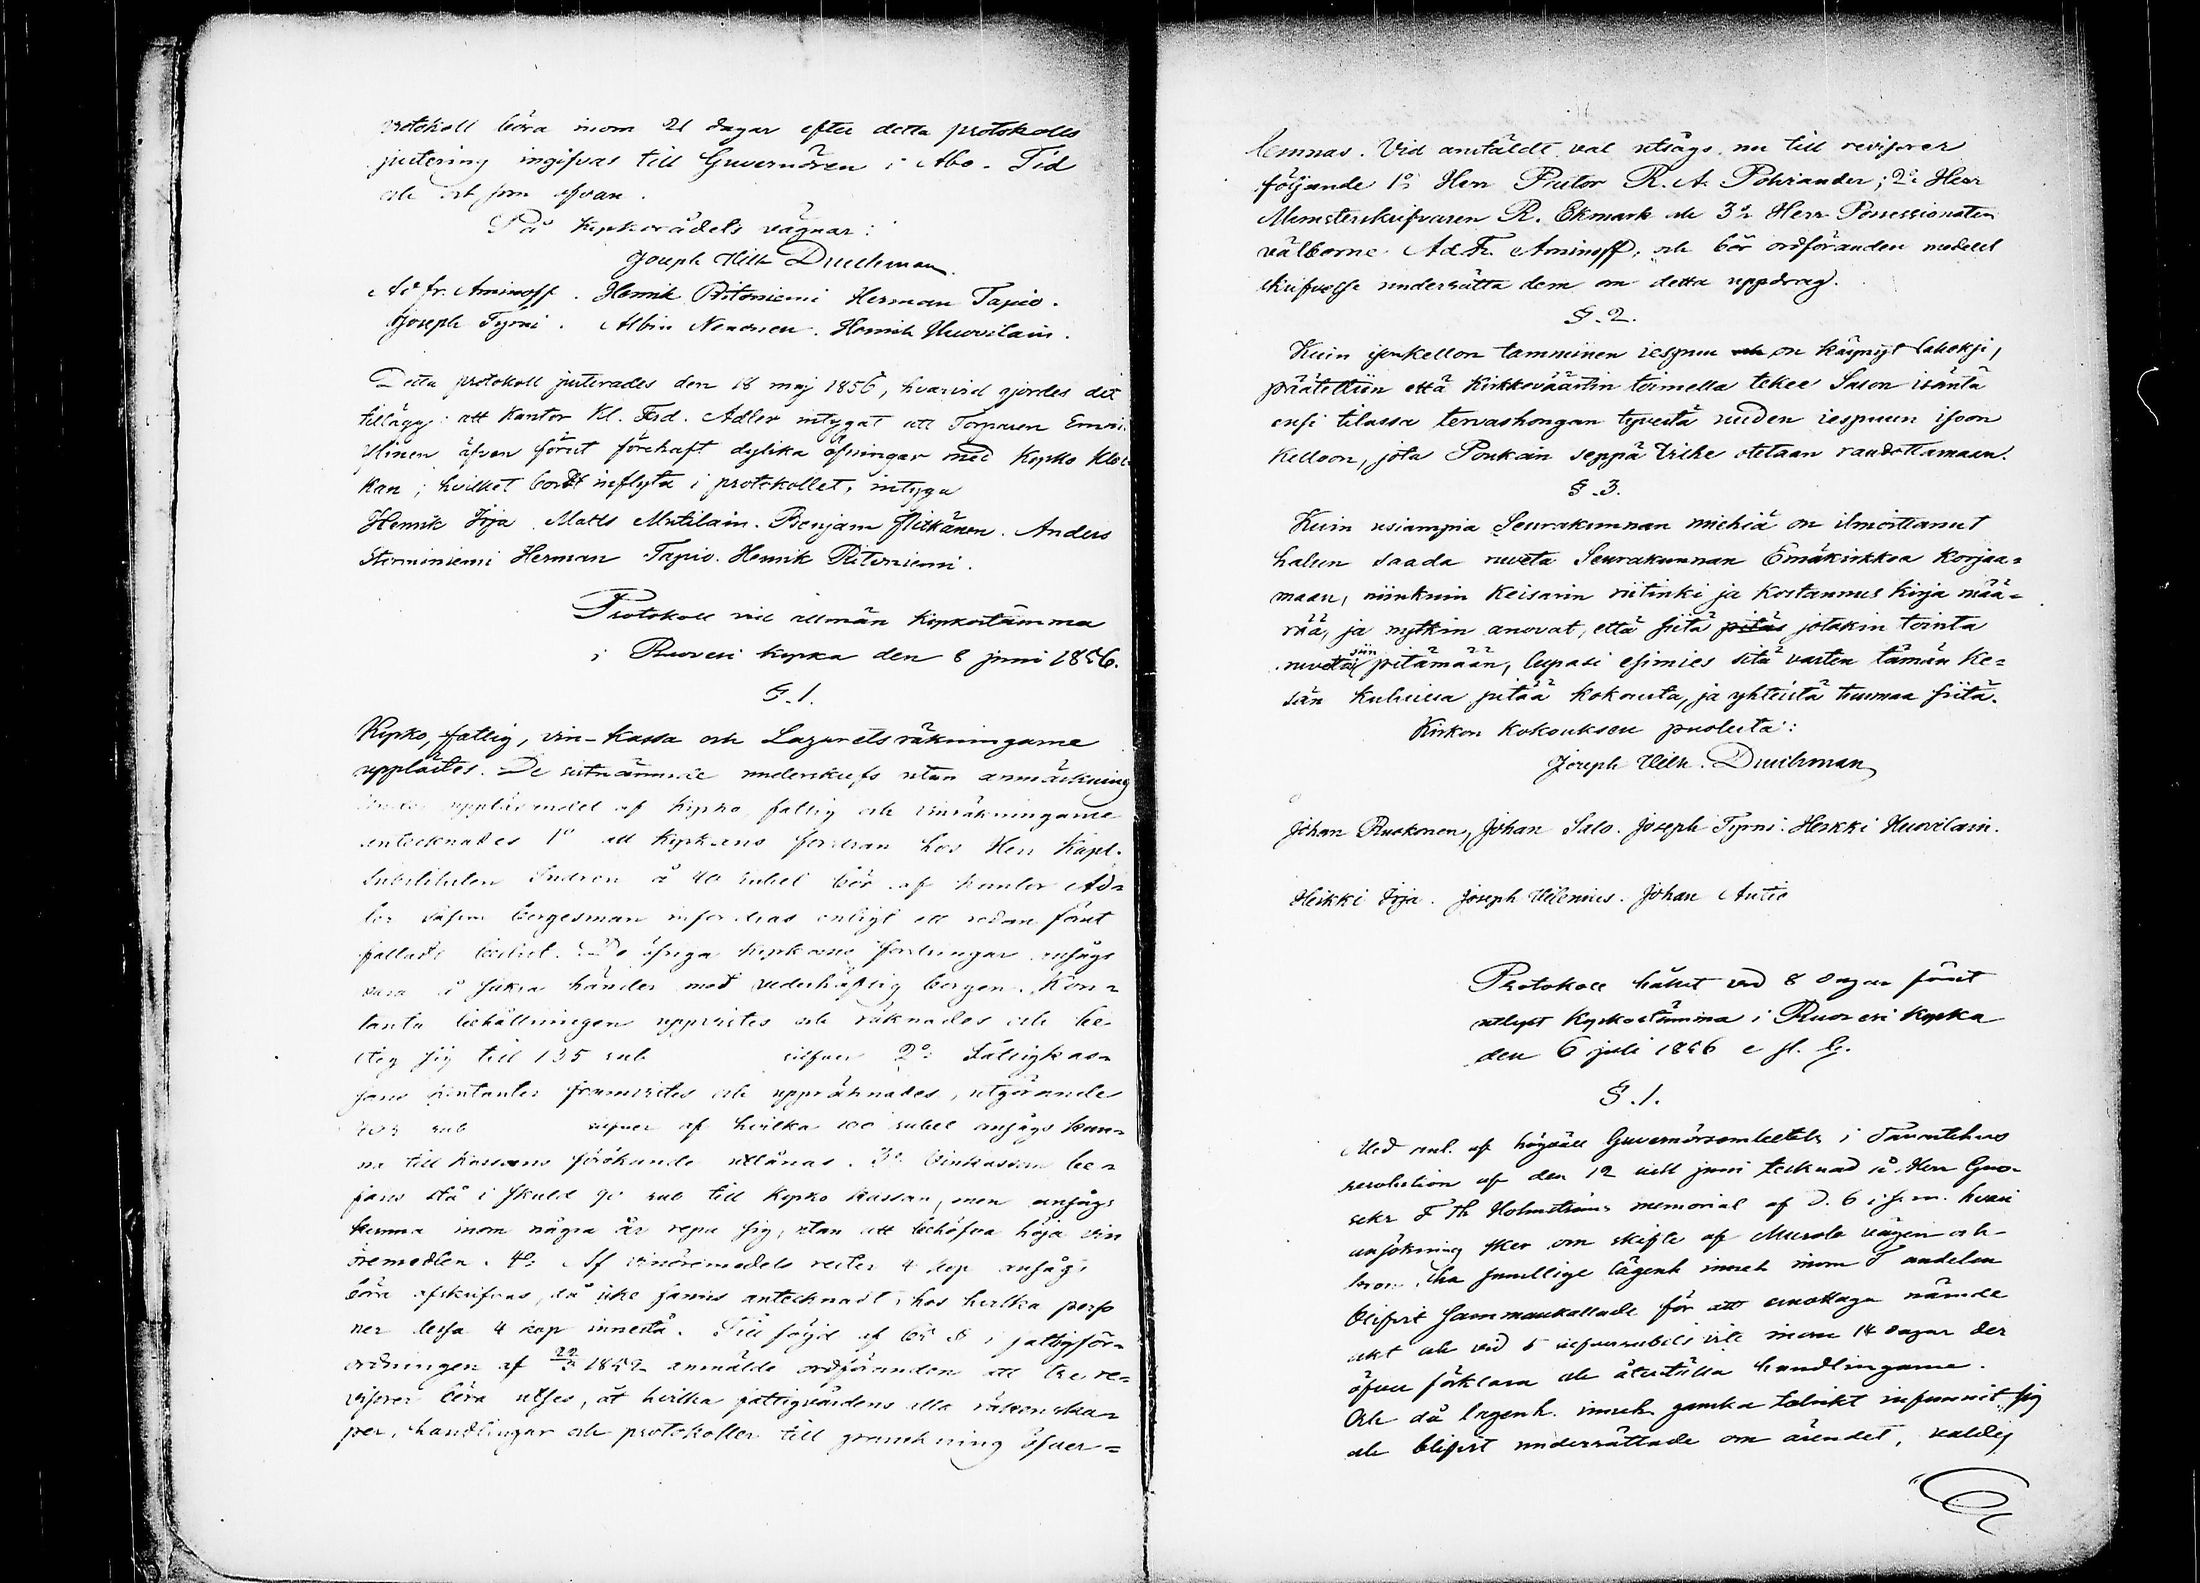 protokoll böra inom 21 dagar efter detta protokolls
justering ingifvas till Guvernören i Åbo. Tid
och ort som ofvan.
På kyrkorådets vägnar:
Joseph Wilh Druchman.
Ad. fr. Aminoff. Henrik Ritoniemi Herman Tapio.
Joseph Tyrni. Albin Nenonen. Henrik Huovilain.
Detta protokoll justerades den 18 maj 1856, hvarvid gjordes det
tillägg: att Kantor Kl. Ferd. Adler intygat att Torparen
äfven förut förehaft dylika öfningar med Kyrko Kloc
kan; hvilket bordt inflyta i protokollet, intyga
Henrik Jrja. Matts Mutilain. Benjam Pitkänen. Anders
Herman Tapio. Henrik Ritoniemi.
Protokoll vid allmän kyrkostämma
i Ruovesi kyrka den 8 juni 1856.
§. 1.
Kyrko, fattig, vin-kassa och Lazarets räkningarne
upplästes. De sistnämnde underskrefs utan anmärkning
uppläsandet af kyrko, fattig och vinräkningarne
antecknades 1o att kyrkans fordran hos Herr Kapl.
Substituten Indren å 40 rubel bör af kantor Ad-
ler såsom borgesman infordras enligt ett redan förut
fattadt beslut. De öfriga kyrkans fordringar ansågs
vara i säkra händer med vederhäftig borgen. Kon-
tanta behållningen uppvistes och räknades och be-
steg sig till 135 rub silfver 2o: Fattigkas-
sans kontanter framvistes och uppräknades, utgörande
rub silfver af hvilka 100 rubel ansågs kun-
na till kassans förökande utlånas. 3o: Vinkassan be-
fans stå i skuld 90 rub till kyrko kassan, men ansågs
kunna inom några år repa sig, utan att behöfva höja vin
öremedlen. 4o: Af vinöremedels rester 4 kop ansågs
böra afskrifvas, då icke fanns antecknadt, hos hvilka perso
ner dessa 4 kop innestå. Till följd af 65 § i fattigför-
ordningen af 22/3 1852 anmälde ordföranden att tre re-
visorer böra utses, åt hvilka fattigvårdens alla räkenska-
per, handlingar och protokoller till granskning öfver=
lemnas. Vid anstäldt val utsågs nu till revisorer
följande 1o: Herr Pastor R. A. Pohiander; 2o: Herr
Mönsterskrifvaren R. Ekmark och 3o: Herr Possessionaten
välborne Ad. Fr. Aminoff, och bör ordföranden medelst
skrifvelse underrätta dem om detta uppdrag.
§. 2.
Kuin ison kellon tamminen iespuu on käynyt lahoksi,
päätettiin että Kirkkoväärtin toimella tekee Salon isäntä
ensi tilassa tervashongan tyvestä uuden iespuun isoon
kelloon, jota Ponkain seppä Vrihe otetaan raudottamaan.
§. 3.
Kuin usiampia Seurakunnan miehiä on ilmoittanut
halun saada ruveta Seurakunnan Emäkirkkoa korjaa=
maan, niinkuin Keisarin riitinki ja kostannus kirja mää=
rää, ja nytkin anovat, että siitä pitäs jotakin tointa
ruvettaisiin pitämään, lupasi esimies sitä varten tämän ke=
sän kuluissa pitää kokousta, ja yhteistä tuumaa siitä.
Kirkon kokouksen puolesta:
Joseph Wilh. Druchman
Johan Ruokonen, Johan Salo. Joseph Tyrni. Heikki Huovilain.
Heikki Jrja. Joseph Vilenius. Johan Antio
Protokoll hållet vid 8 dagar förut
utlyst Kyrkostämma i Ruovesi kyrka
den 6 juli 1856 e fl. G.
§. 1.
Med anl. af högädle Guvernörsembetets i Tavastehus
resolution af den 12 sistl juni tecknad å Herr Guv-
sekr F Th Holmströms memorial af d. 6 i s. m. hvari
ansökning sker om skifte af Murole vägen och
bron, ha samtlige lägenh inneh inom andelen
blifvit sammankallade för att emottaga nämde
akt och vid 5 silfverrubels vite inom 14 dagar der
öfver förklara och återställa handlingarne.
Och då lägenh. inneh. ganska talrikt infunnit sig
och blifvit underrättade om ärendet, valdes